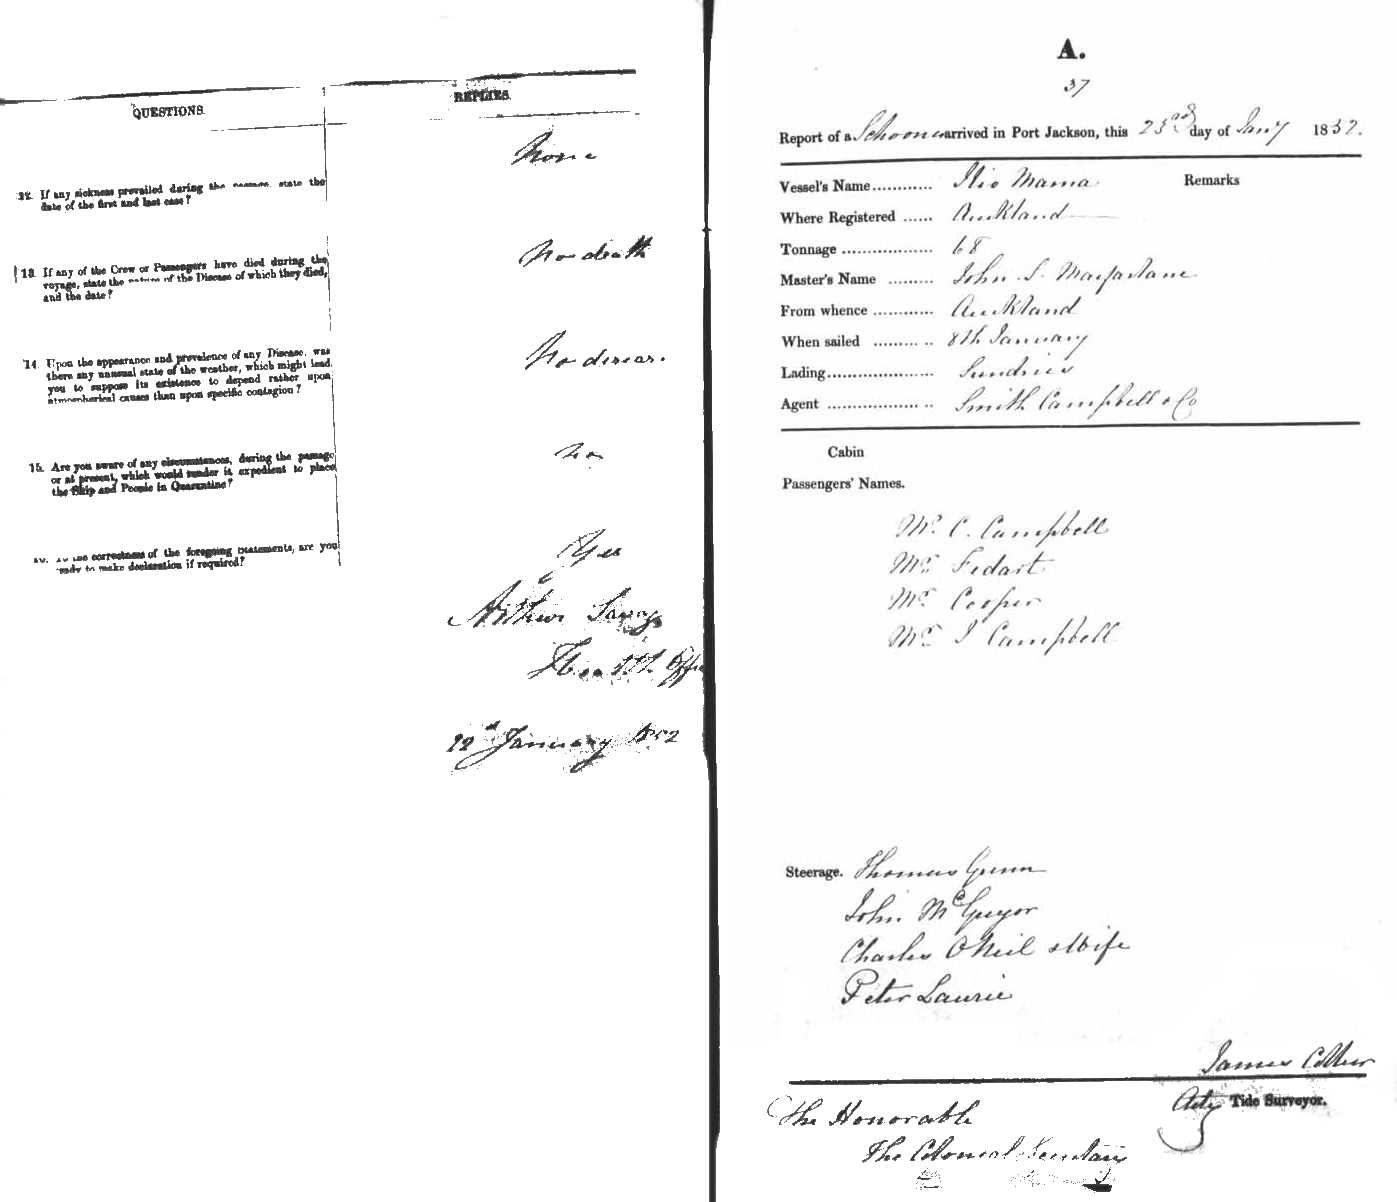 QUESTIONS.
REPLIES.
None
12. If any sickness prevailed during the passage, state the
date of the first and last case?
No death
13. If any of the Crew or Passengers have died during the
voyage, state the nature of the Disease of which they died,
and the date?
No diseas.
14. Upon the appearance and prevalence of any Disease, was
there any unusual state of the weather, which might lead
you to suppose its existence to depend rather upon
atmospherical causes than upon specific contagion?
No
15. Are you aware of any circumstances, during the passage
or at present, which would render it expedient to place
the Ship and People in Quarantine?
Yes
to the correctness of the foregoing Statements, are you
ready to make declaration if required?
Arthur Savage
Health Offi
January 1852
A.
37
Report of a Schooner arrived in Port Jackson, this 23rd day of Jany 1852.
Vessel's Name............ Ilio Mama
Remarks
Where Registered ...... Auckland
Tonnage .................. 68
Master's Name ......... John S. Macfarlane
From whence ............ Auckland
When sailed ......... .. 8th January
Lading..................... Sundries
Agent .................. .. Smith Campbell & Co
Cabin
Passengers' Names.
Mr. C. Campbell
Mr. Fedart
Mr. Cooper
Mr. J Campbell
Steerage. Thomas Gunn
John McGregor
Charles ONeil & Wife
Peter Laurie
James
Actg Tide Surveyor.
The Honorable
The Colonial Secretary